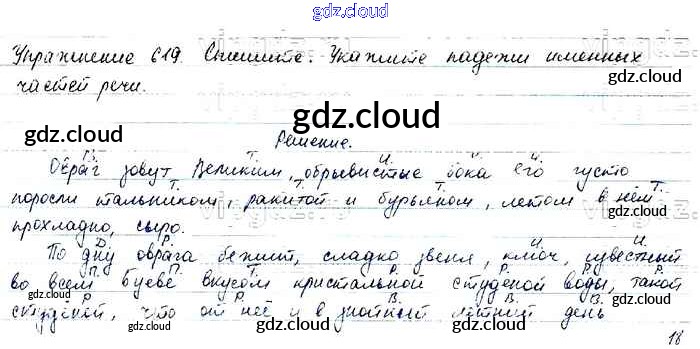 gdz.cloud
Упражнение 619. Спишите. Укажите падежи именных
gdz.cloud
частей речи.
gdz.cloud
gdz.cloud
Решение.
Овраг зовут Великим, обрывистые бока его густо
поросли тальником, ракитой и бурьяном, летом в нём
прохладно, сыро.
По дну оврага бежит, сладко звеня, ключ, известный
во всем Буеве вкусом кристальной студеной воды, такой
студеной, что от неё и в знойный летний день
gdz.cloud
gdz.cloud
18